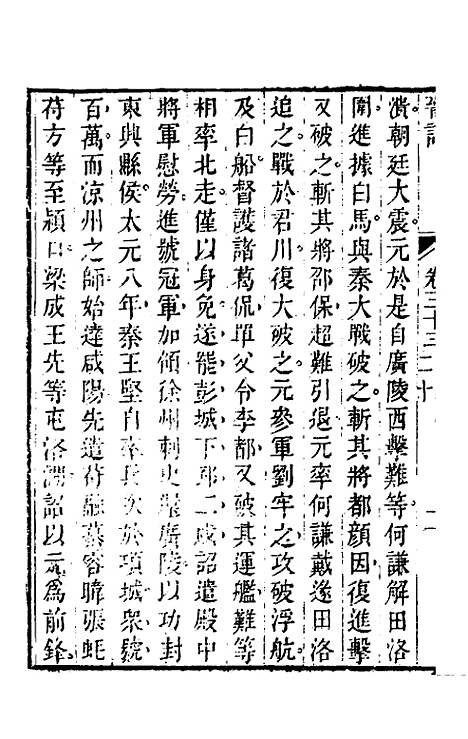 晉記 卷三十三 二十
潰朝廷大震元於是自廣陵西擊難等何謙解田洛
圍進據白馬與秦大戰破之斬其將都顔因復進擊
又破之斬其將邵保超難引退元率何謙戴逯田洛
追之戰於君川復大破之元參軍劉牢之攻破浮航
及白船督護諸葛侃單父令李都又破其運艦難等
相率北走僅以身免遂罷彭城下邳二戍詔遣殿中
將軍慰勞進號冠軍加領徐州刺史還廣陵以功封
東興縣侯太元八年秦王堅自率兵次於項城眾號
百萬而凉州之師始達咸陽先遣苻融慕容暐張蚝
苻方等至潁口梁成王先等屯洛澗詔以元爲前鋒